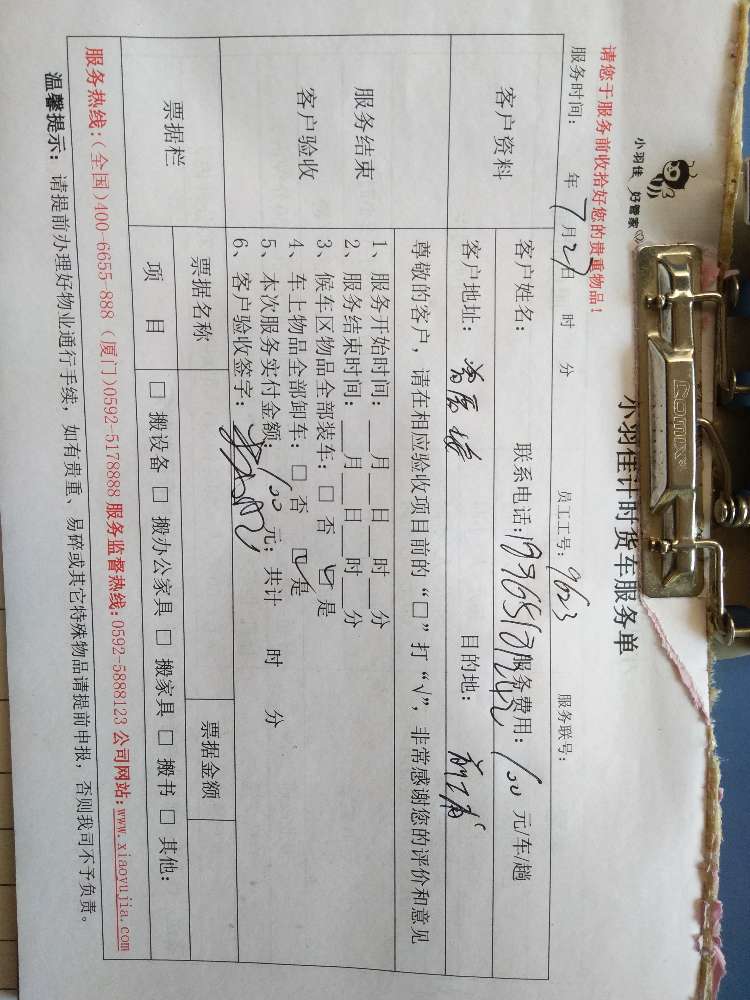 小羽佳 好管家
Comix
小羽佳计时货车服务单
请您于服务前收拾好您的贵重物品！
服务时间： 年 7月27日 时 分 员工工号：9623 服务联号：
客户资料
客户姓名： 联系电话： 服务费用：100 元/车/趟
客户地址： 目的地：
尊敬的客户，请在相应验收项目前的“□”打“√”，非常感谢您的评价和意见
服务结束
客户验收
1、服务开始时间：__月__日__时__分
2、服务结束时间：__月__日__时__分
3、候车区物品全部装车：□ 否 ☑ 是
4、车上物品全部卸车：□ 否 ☑ 是
5、本次服务实付金额：100 元；共计 时 分
6、客户验收签字：
票据栏
票据名称 票据金额
项 目 □ 搬设备 □ 搬办公家具 □ 搬家具 □ 搬书 □ 其他：
服务热线：(全国)400-6655-888 (厦门)0592-5178888 服务监督热线：0592-5888123 公司网站：www.xiaoyujia.com
温馨提示：请提前办理好物业通行手续，如有贵重、易碎或其它特殊物品请提前申报，否则我司不予负责。